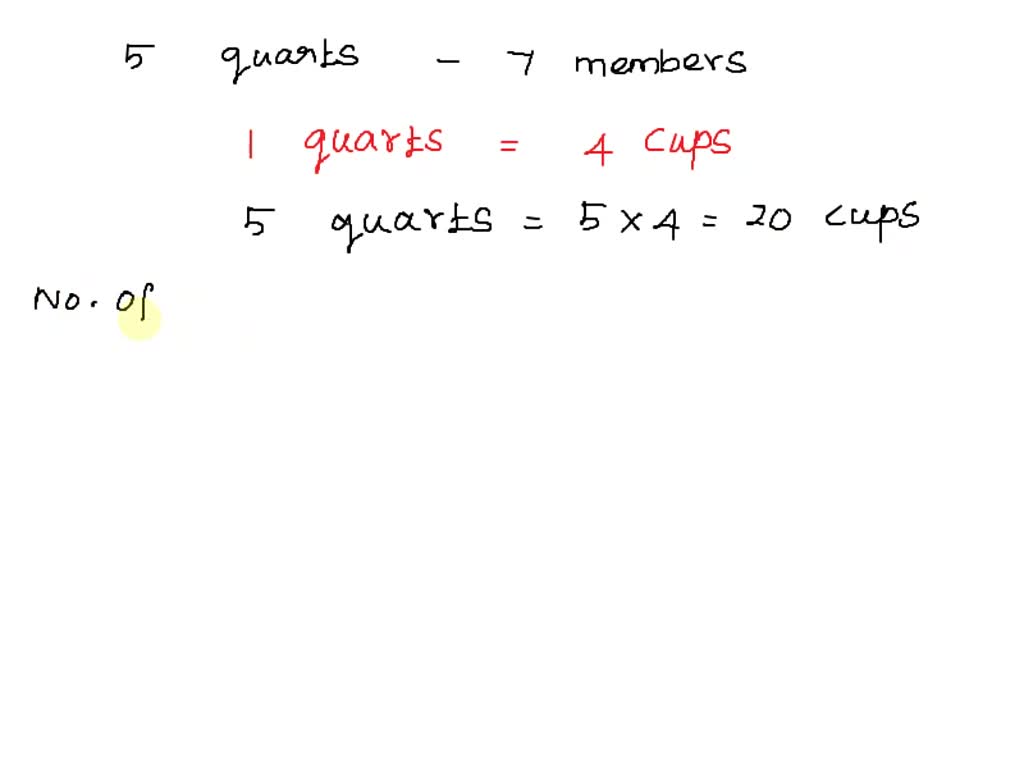 5 quarts - 7 members
1 quarts = 4 cups
5 quarts = 5 × 4 = 20 cups
No. of